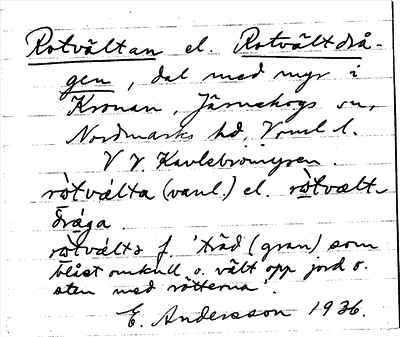 Rotvältan el. Rotvältdrå-
gen, dal med myr i
Kronan, Järnskogs sn,
Nordmarks hd, Vrml l.
V Kavlebromyren.
ròtválta (vanl.) el. ròtvælt
dråga
ròtválta f. 'träd (gran) som
blåst omkull o. vält opp jord o.
sten med rötterna'.
E. Andersson 1936.